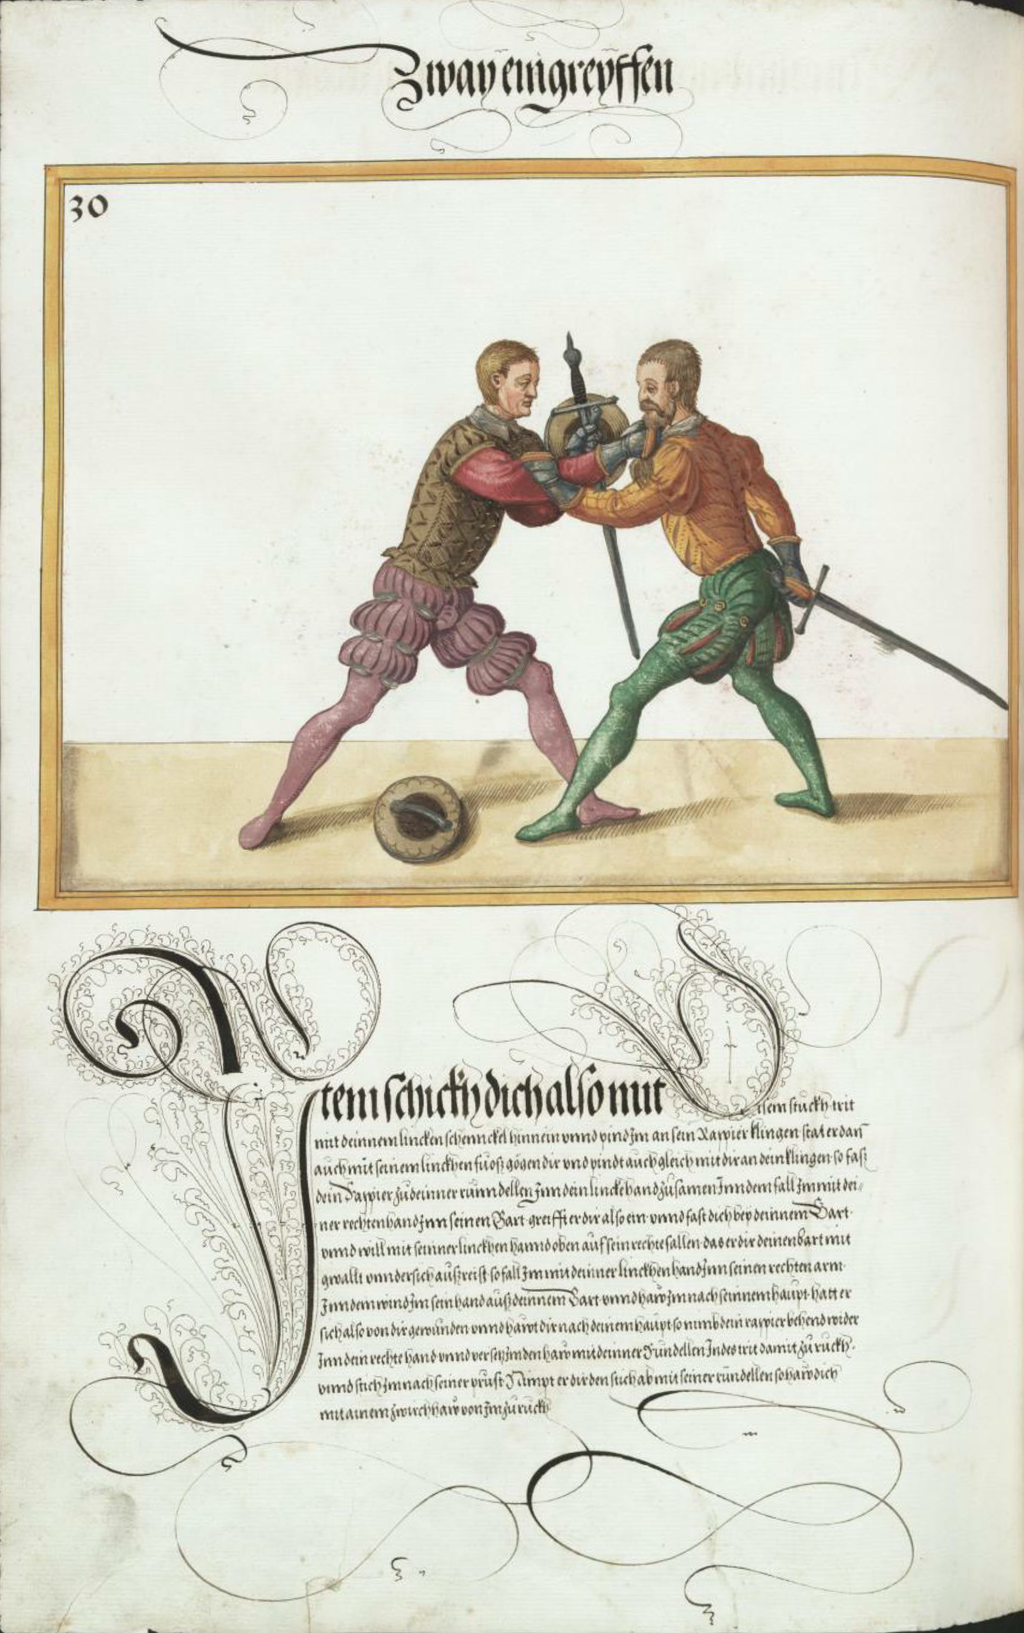 Zway eingreyffen
30
Item schickh dich also mit
disem stuckh trit
mit deinnem lincken schennckel hinnein vnnd pind Im an sein Rappier klingen stat er dan̄
auch mit seinem linckhen fuoß gögen dir vnd pindt auch gleich mit dir an dein klingen so faß
dein Rappier zu deinner runndellen Inn dein lincke hand zusamen Inn dem fall Im mit dei-
ner rechten hand Inn seinen Bart greifft er dir also ein vnnd fast dich bey deinnem Bart
vnnd will mit seinner linckhen hannd oben auf sein rechte fallen das er dir deinen bart mit
gwallt vnndersich außreist so fall Im mit deinner linckhen hand Inn seinen rechten arm
Inn dem wind Im sein hand auß deinnem Bart vnnd haw Im nach seinnem haupt hatt er
sich also von dir gewunden vnnd hawt dir nach deinem haupt so nimb dein rappier behend wider
Inn dein rechte hand vnnd versetz Im den haw mit deinner Rundellen Indes trit damit zu ruckh
vnnd stich Im nach seiner prust Nimpt er dir den stich ab mit seiner rundellen so haw dich
mit ainem zwirch haw von Im zu ruckh